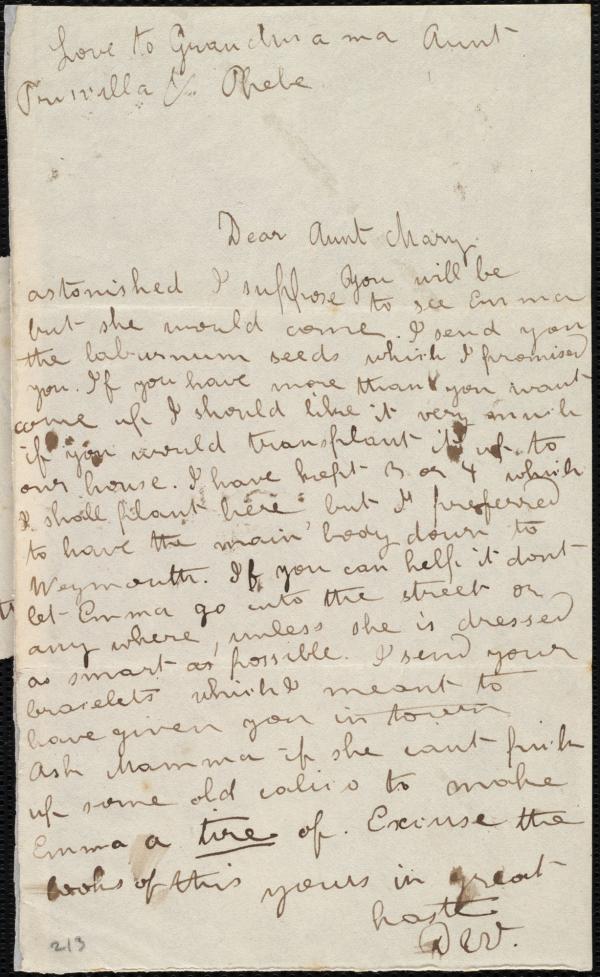 Love to Grandmama Aunt
Priscilla & Phebe
Dear Aunt Mary.
astonished I suppose you will be
to see Emma
but she would come. I send you
the laburnum seeds which I promised
you. If you have more than you want
come up I should like it very much
if you would transplant it up to
our house. I have kept 3 or 4 which
I shall plant here but I preferred
to have the main body down to
Weymouth. If you can help it dont
let Emma go into the street or
any where, unless she is dressed
as smart as possible. I send your
bracelets which I meant to
have given you in town
Ask Mamma if she cant pick
up some old calico to make
Emma a tire of. Excuse the
looks of this yours in great
haste
D W.
213